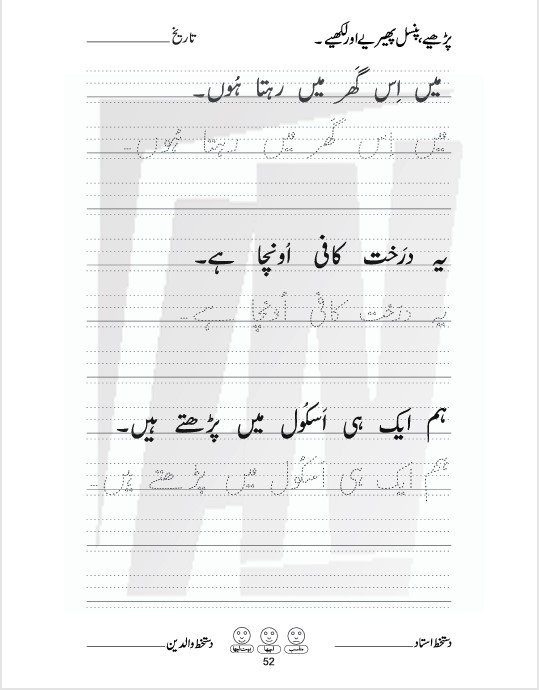 پڑھیے، پنسل پھیریے اور لکھیے ۔ تاریخ
میں اِس گَھر میں رہتا ہُوں۔
میں اِس گَھر میں رہتا ہُوں۔
یہ درَخت کافی اُونچا ہے۔
یہ درَخت کافی اُونچا ہے۔
ہم ایک ہی اَسکُول میں پڑھتے ہیں۔
ہم ایک ہی اَسکُول میں پڑھتے ہیں۔
دستخط استاد مناسب اچھا بہت اچھا دستخط والدین
52